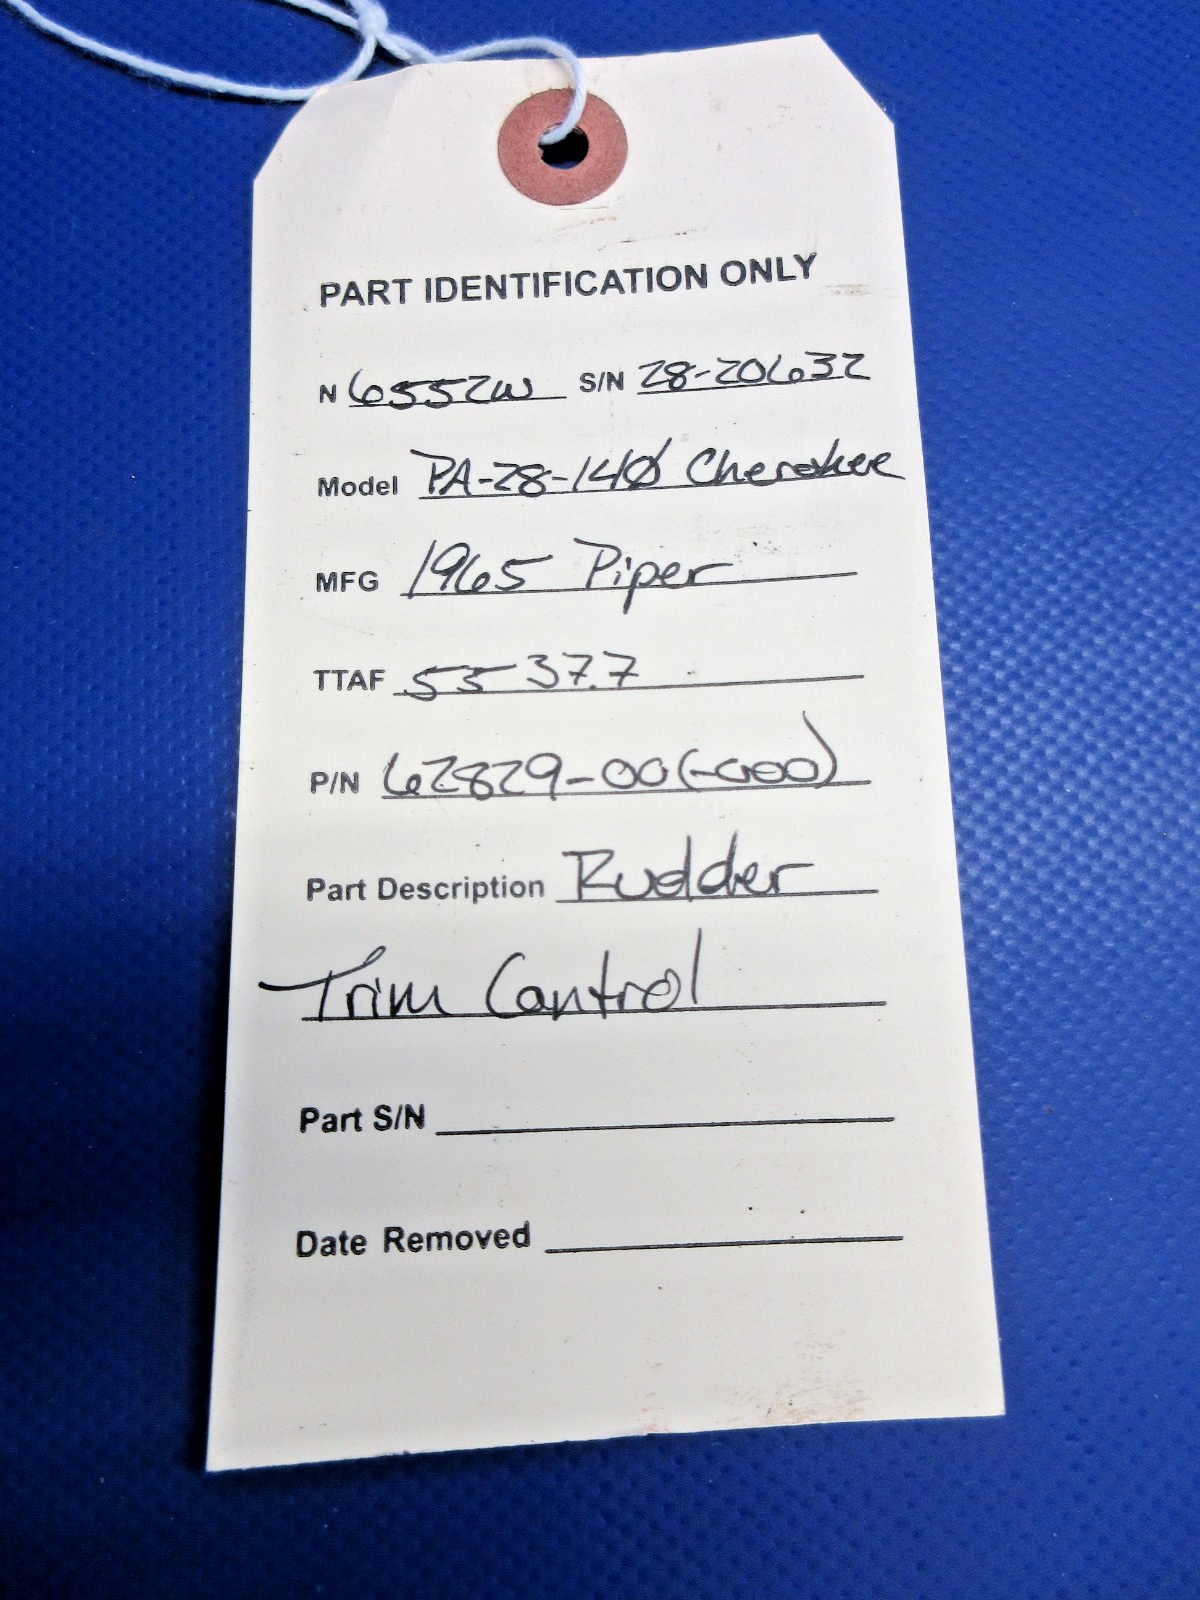 PART IDENTIFICATION ONLY
N 6552W S/N 28-20632
Model PA-28-140 Cherokee
MFG 1965 Piper
TTAF 5537.7
P/N 62829-00(-000)
Part Description Rudder
Trim Control
Part S/N
Date Removed